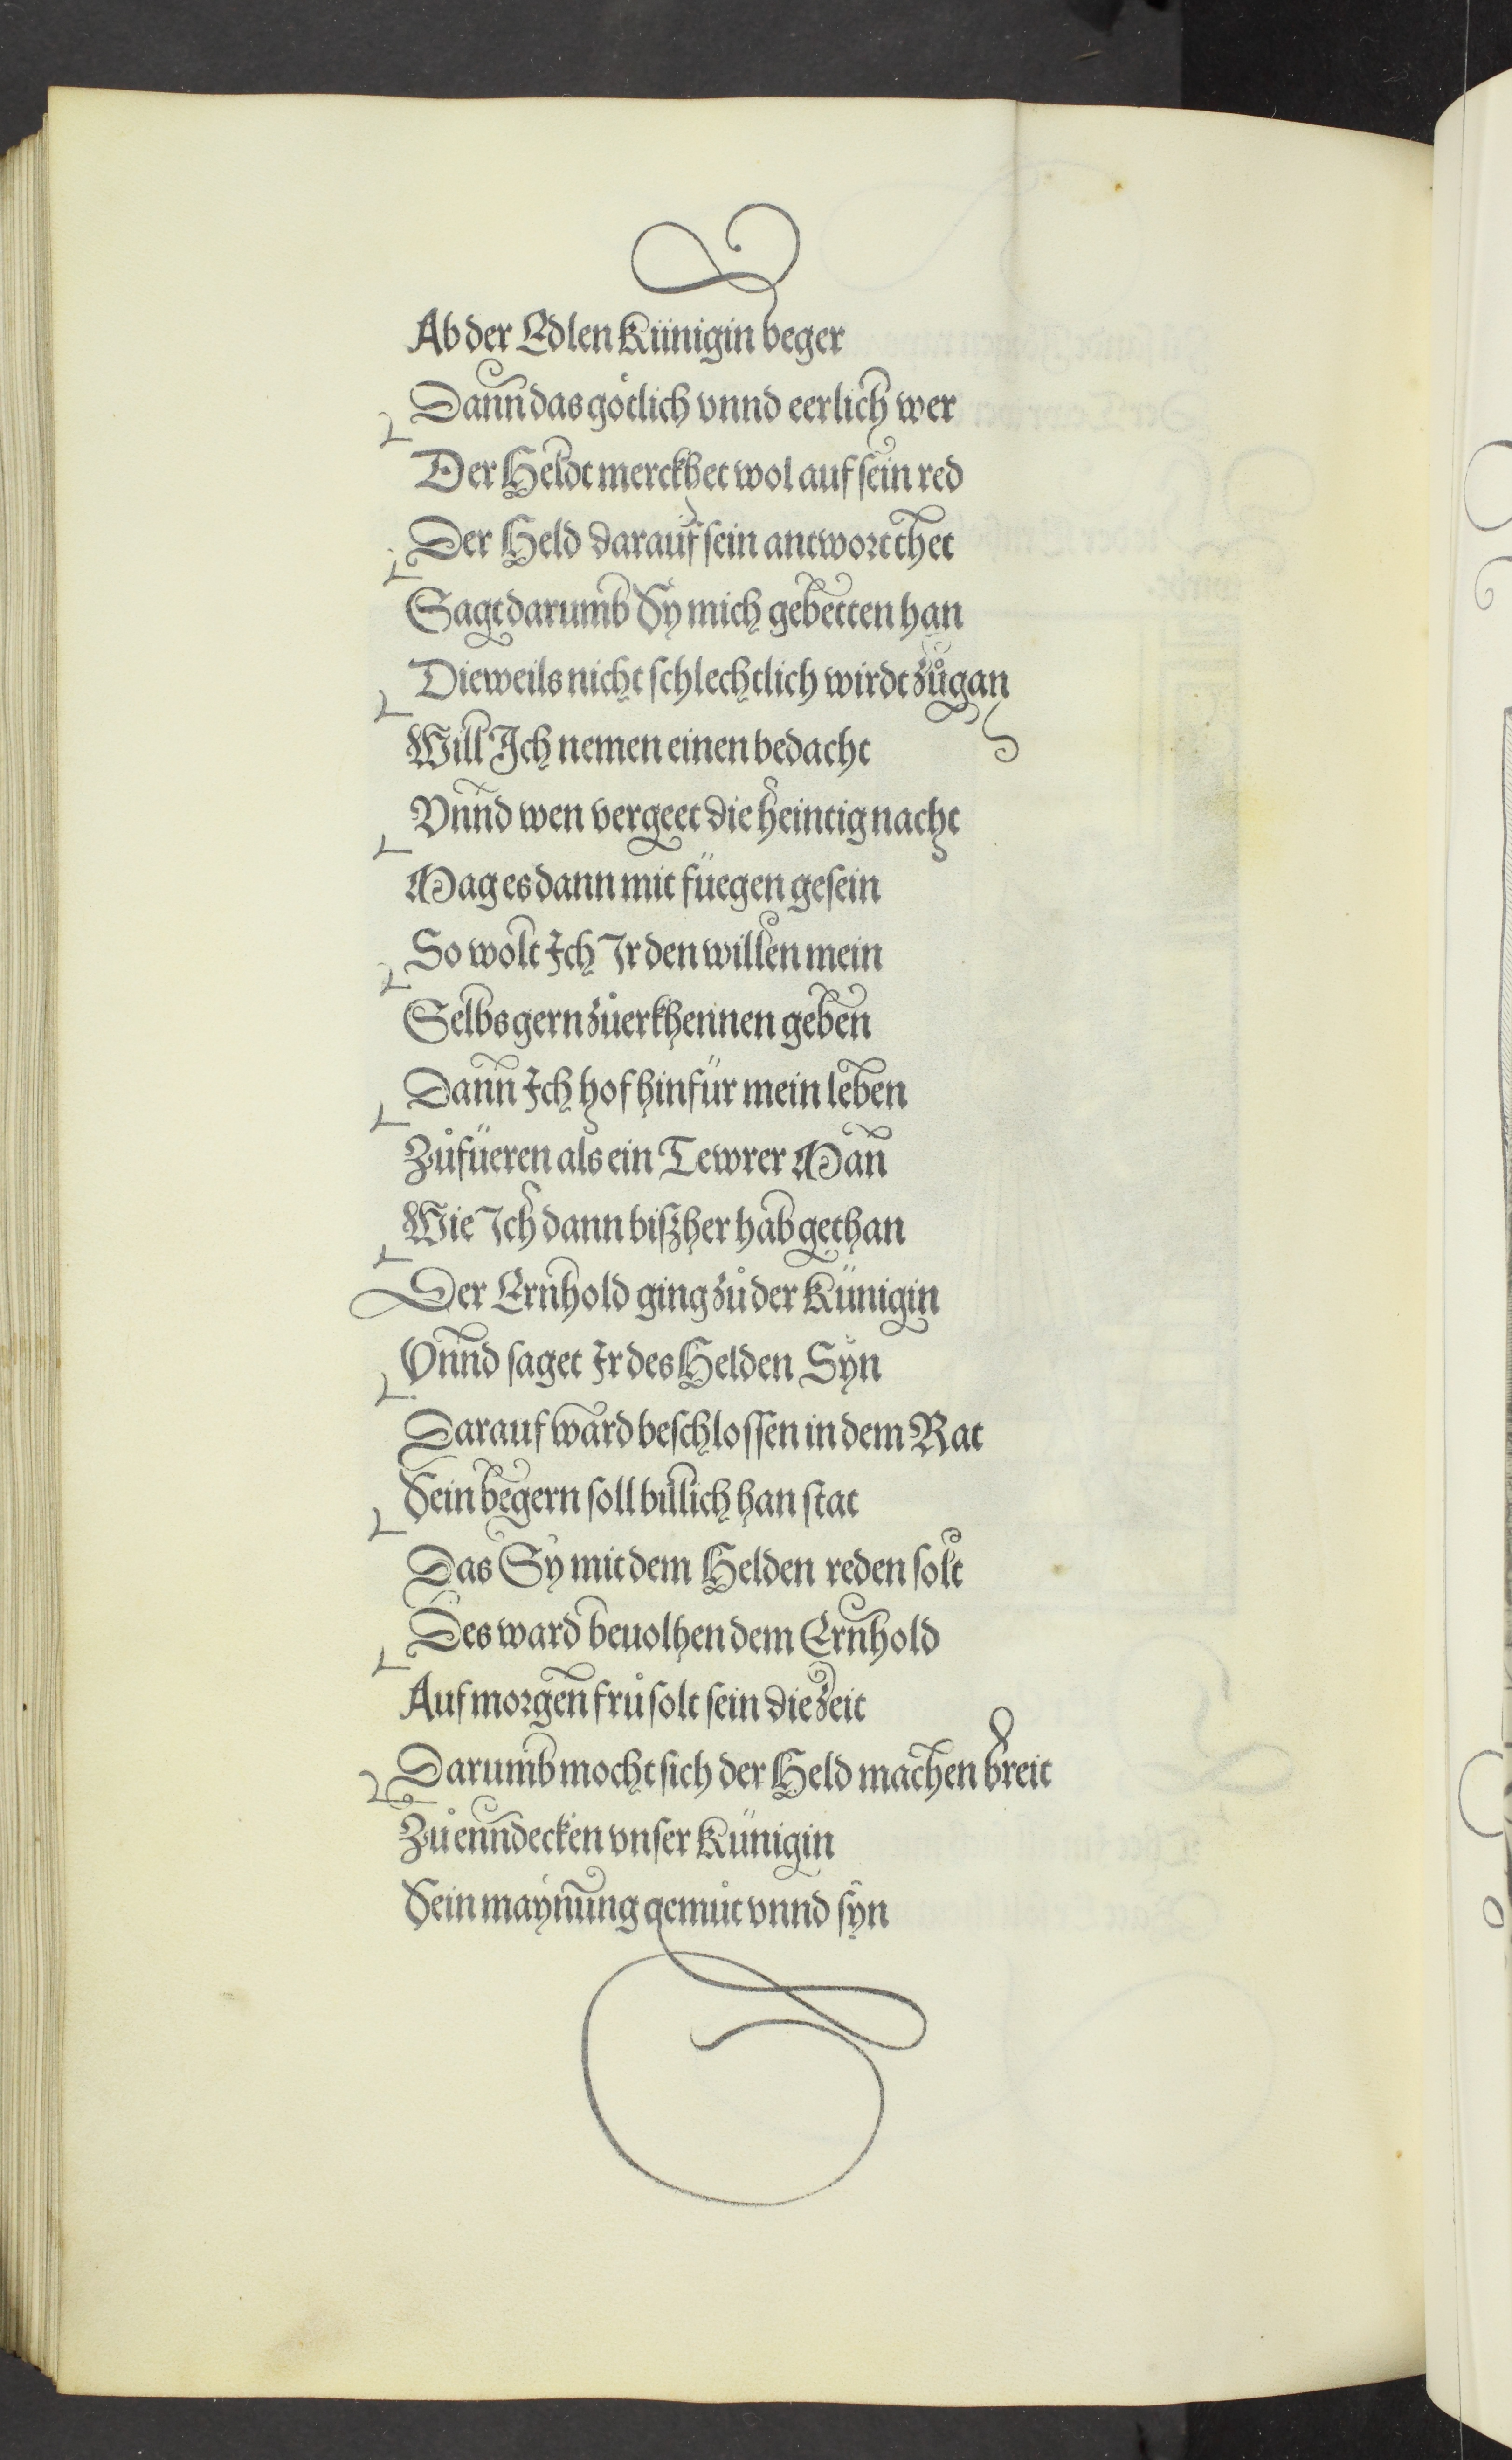 Ab der Edlen Künigin beger
Dann das götlich vnnd eerlich wer
Der Heldt merckhet wol auf sein red
Der Held darauf sein antwort thet
Sagt darumb Sy mich gebetten han
Dieweils nicht schlechtlich wirdt zůgan
Will Ich nemen einen bedacht
Vnnd wen vergeet die heintig nacht
Mag es dann mit füegen gesein
So wolt Ich Ir den willen mein
Selbs gern zůerkhennen geben
Dann Ich hof hinfür mein leben
Zůfüeren als ein Tewrer Man
Wie Ich dann biszher hab gethan
Der Ernhold ging zů der Künigin
Vnnd saget Ir des Helden Syn
Darauf ward beschlossen in dem Rat
Sein begern soll billich han stat
Das Sy mit dem Helden reden solt
Des ward beuolhen dem Ernhold
Auf morgen frů solt sein die zeit
Darumb mocht sich der Held machen breit
Zů enndecken vnser Künigin
Sein maynung gemůt vnnd syn